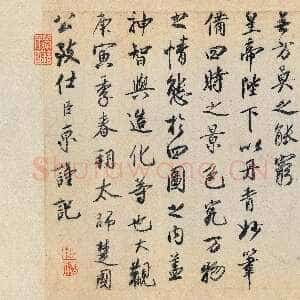 無方莫之能窮
皇帝陛下以丹青妙筆
備四時之景色究萬物
之情態於四圖之內蓋
神智與造化等也大觀
庚寅季春朔太師楚國
公致仕臣京謹記